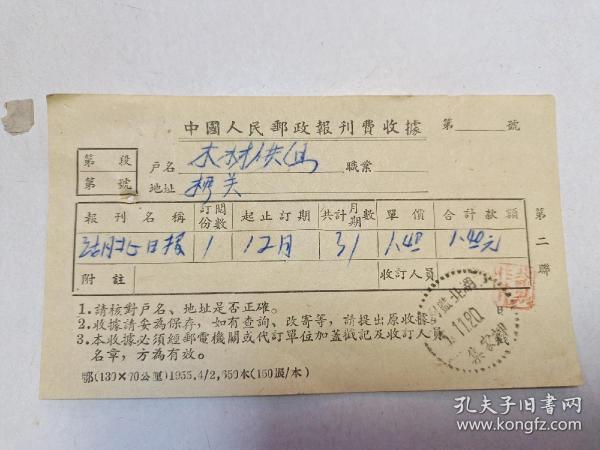 中國人民郵政報刊費收據 第 號
第 段
第 號
戶名 木材供 職業
地址 橋关
報刊名稱 訂閱份數 起止訂期 共計月期數 單價 合計款額
湖北日报 1 12月 31 1.40 1.40元
附註 收訂人員
第二聯
1.請核對戶名、地址是否正確。
2.收據請妥為保存,如有查詢、改寄等,請提出原收據。
3.本收據必須經郵電機關或代訂單位加蓋戳記及收訂人員
名章,方為有效。
鄂(130×70公厘)1955.4/2,650本(150張/本)
湖北監
11.20
日
孔夫子旧书网
www.kongfz.com